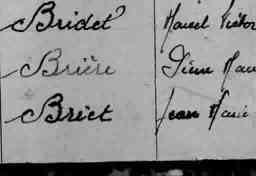 Bridet Marcel Victor
Brière Pierre Mau
Briet Jean Marie